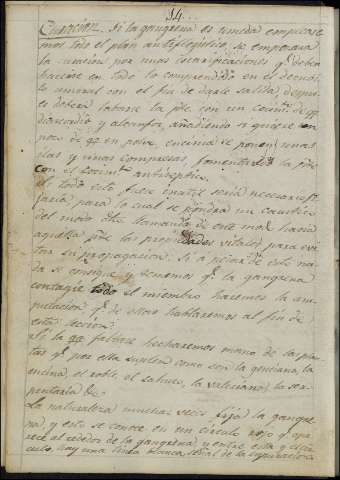 14..
Curacion. Si la gangrena es humeda empleare
mos todo el plan antiflogistico, se empezara
la curacion por unas escarificaciones q.e deben
hacerse en todo lo comprendido en el decubi
to umoral con el fin de darle salida, despues
se debera labarse la p.te con un cocim.to de qq
diascordio y alcanfor, añadiendo si quiere un
poco de qq en polvo, encima se ponen unas
ilas y unas compresas fomentada la p.te
con el cocim.to antiseptico.
Si todo esto fuese inutil seria necesario fi
jarla para lo cual se pondra un caustico
del modo dho llamando de este modo hacia
aquella p.te las propiedades vitales para evi
tar su propagacion. Si a pesar de esto na
da se consigue y tenemos q.e la gangrena
contagie todo el miembro haremos la am
putacion q.e de esto hablaremos al fin de
esta seccion.
Si la qq faltare hecharemos mano de las plan
tas q.e por ella suplen como son la genciana, la
encina, el roble, el sahuco, la valeriana, la ser
pentaria &c.
La naturaleza muchas veces fija la gangre
na, y esto se conoce en un circulo rojo q.e apa
rece al rededor de la gangrena, y entre esta y el cir
culo, hay una linea blanca señal de la supuracion